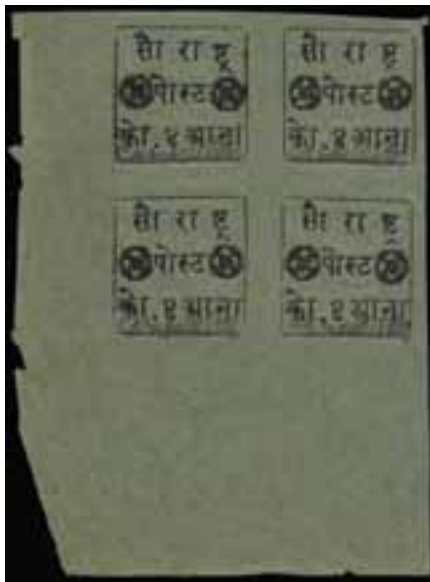 सौ रा ष्ट्र
पोस्ट
को.४ आना
सौ रा ष्ट्र
पोस्ट
को.४ आना
सौ रा ष्ट्र
पोस्ट
को.४ आना
सौ रा ष्ट्र
पोस्ट
को.४ आना